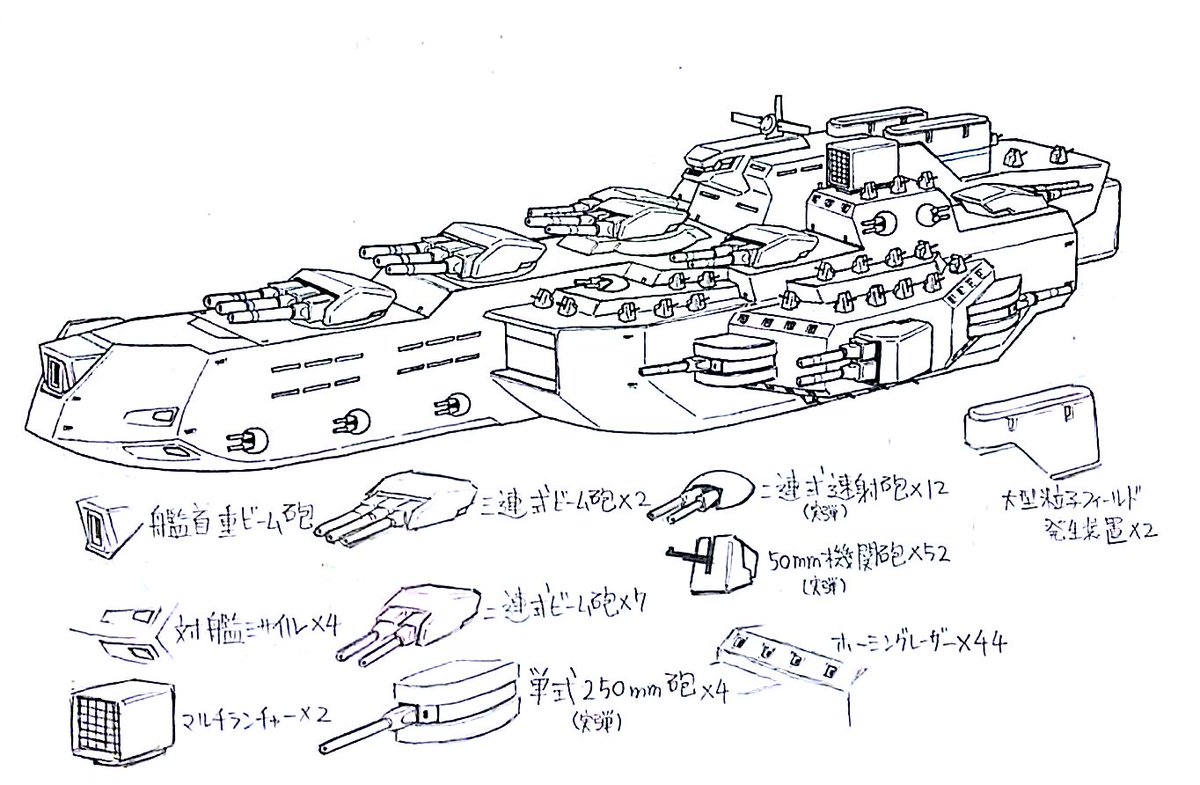 艦首重ビーム砲
三連式ビーム砲×2
二連式速射砲×12
(実弾)
大型粒子フィールド
発生装置×2
50mm機関砲×52
(実弾)
対艦ミサイル×4
二連式ビーム砲×7
ホーミングレーザー×44
マルチランチャー×2
単式250mm砲×4
(実弾)